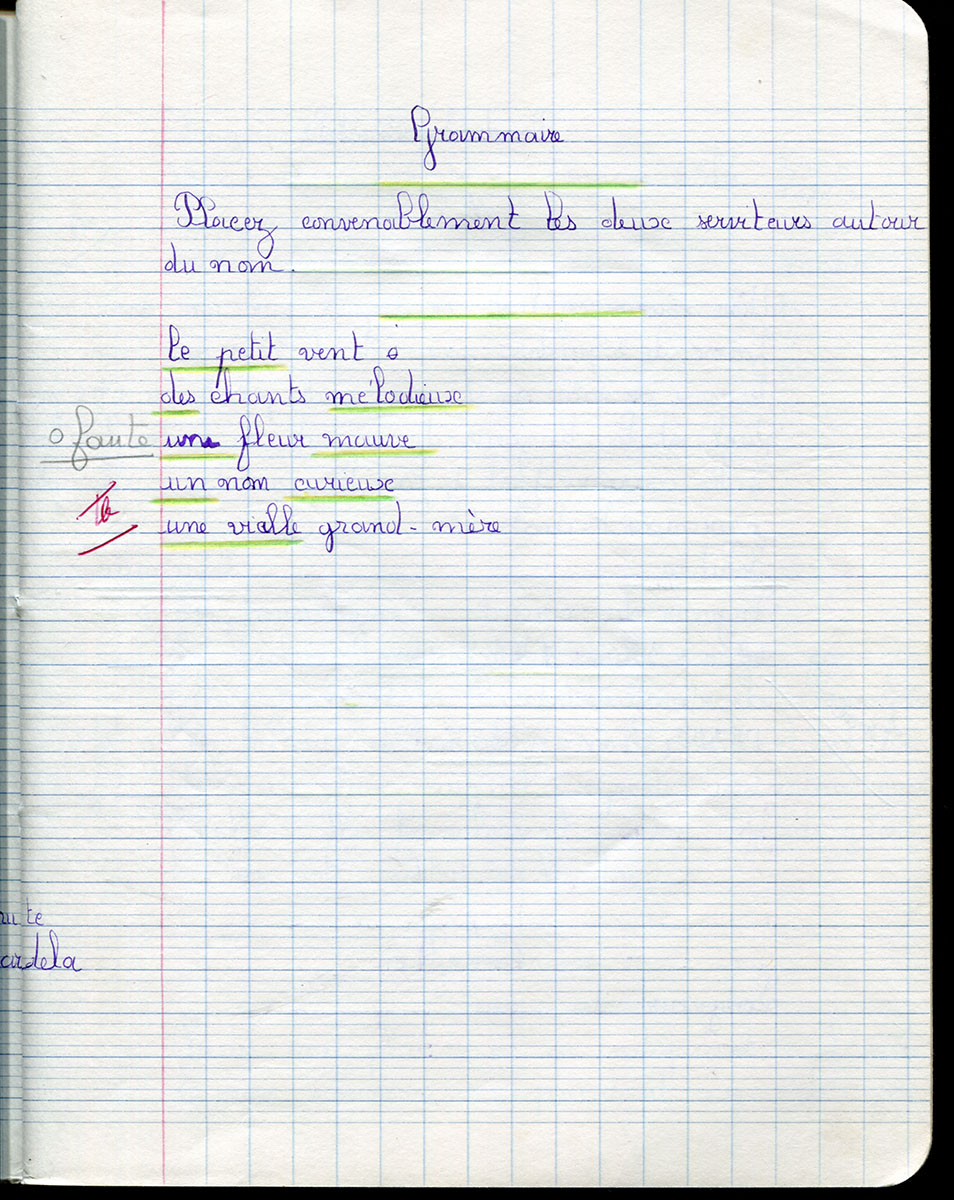 Grammaire
Placez convenablement les deux serviteurs autour
du nom.
Le petit vent
des chants mélodieux
0 faute une fleur mauve
un nom curieux
tb une vielle grand-mère
ardela